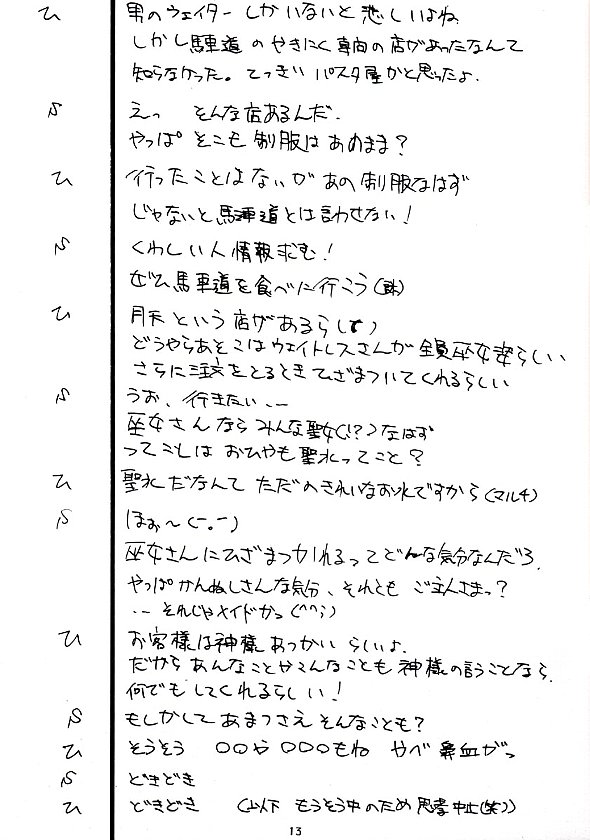 ひ 男のウェイターしかいないと悲しいよね
しかし馬車道のやきにく専向の店があったなんて
知らなかった。てっきりパスタ屋かと思ったよ.
S えっ そんな店あるんだ.
やっぱそこも制服はあのまま?
ひ 行ったことはないがあの制服なはず
じゃないと馬車道とは言わせない!
S くわしい人情報求む!
ぜひ馬車道を食べに行こう
ひ 月天という店があるらしい
どうやらあそこはウェイトレスさんが全員巫女姿らしい
さらに注文をとるときひざまづいてくれるらしい
S うお、行きたい…
巫女さんならみんな聖女(!?)なはず
ってことはおひやも聖水ってこと?
ひ 聖水だなんてただのきれいなお水ですから(マルチ)
S ほぉ~(-。-)
巫女さんにひざまつかれるってどんな気分なんだろ.
やっぱかんぬしさんな気分、それともご主人さまっ?
… それじゃメイドかっ(^^;)
ひ お客様は神様あっかいらしいよ.
だからあんなことやこんなことも神様の言うことなら.
何でもしてくれるらしい!
S もしかしてあまつさえそんなことも?
ひ そうそう ○○や○○○もね やべ鼻血がっ
S どきどき
ひ どきどき (以下 もうそう中のため思考中止(笑))
13